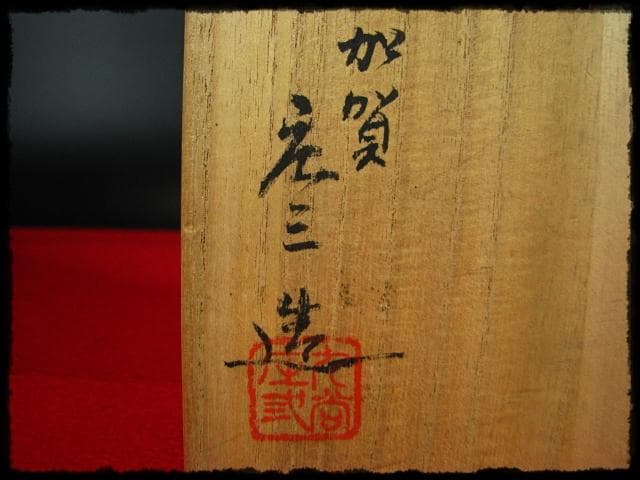 加賀
庄三造